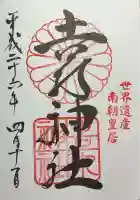 世界遺産
南朝皇居
吉水神社
平成二十六年四月十一日